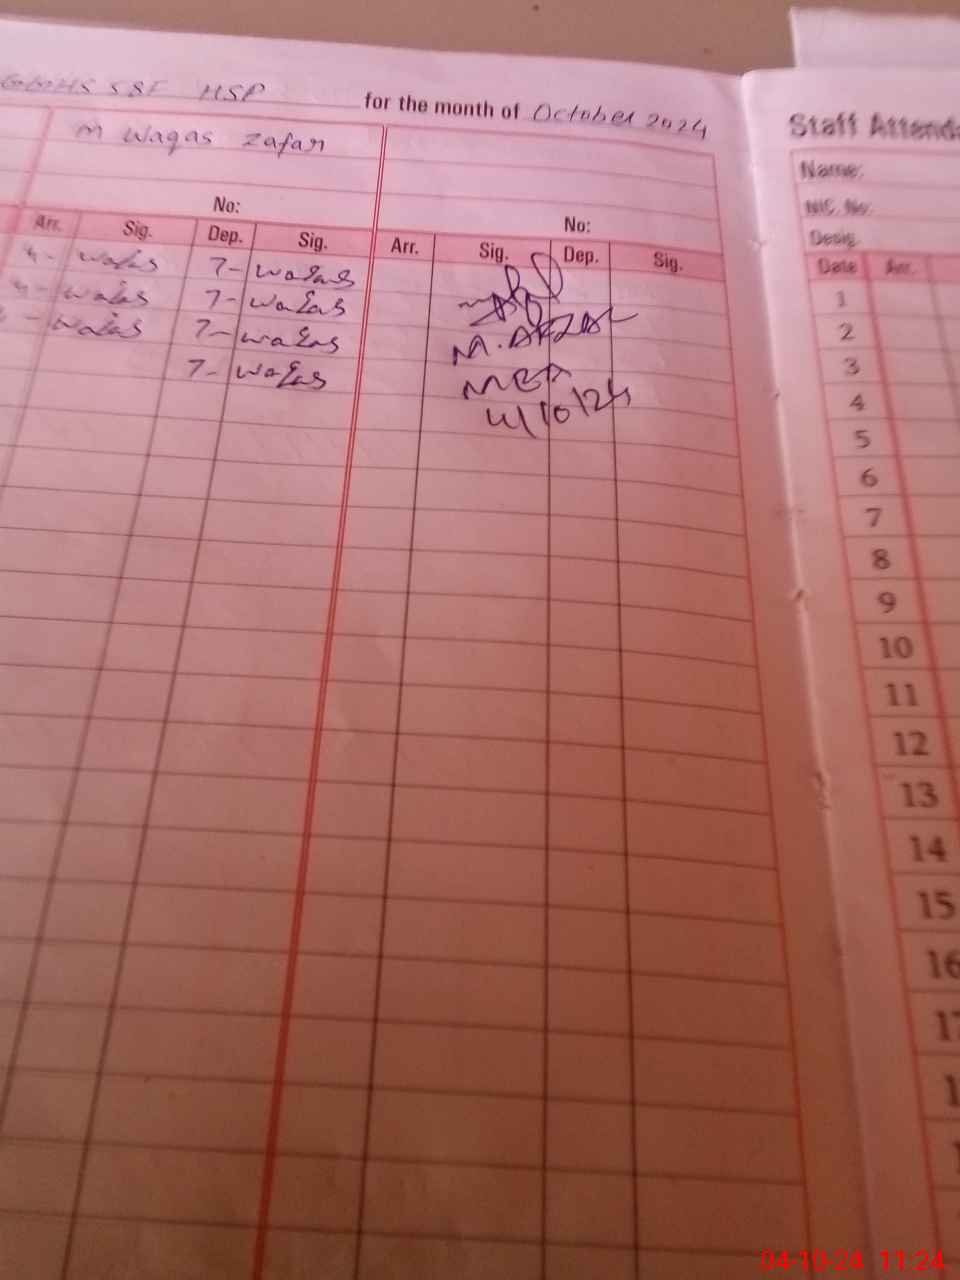 HSP for the month of October 2024
M Waqas Zafar
No:
No:
Arr. Sig. Dep. Sig. Arr. Sig. Dep. Sig.
7- Waqas
7- Waqas
7- Waqas
7- Waqas
M. AFZAL
MEA
4/10/24
Staff Attend
Name:
NIC. No:
Desig.
Date Arr.
1
2
3
4
5
6
7
8
9
10
11
12
13
14
15
16
04-10-24 11:24